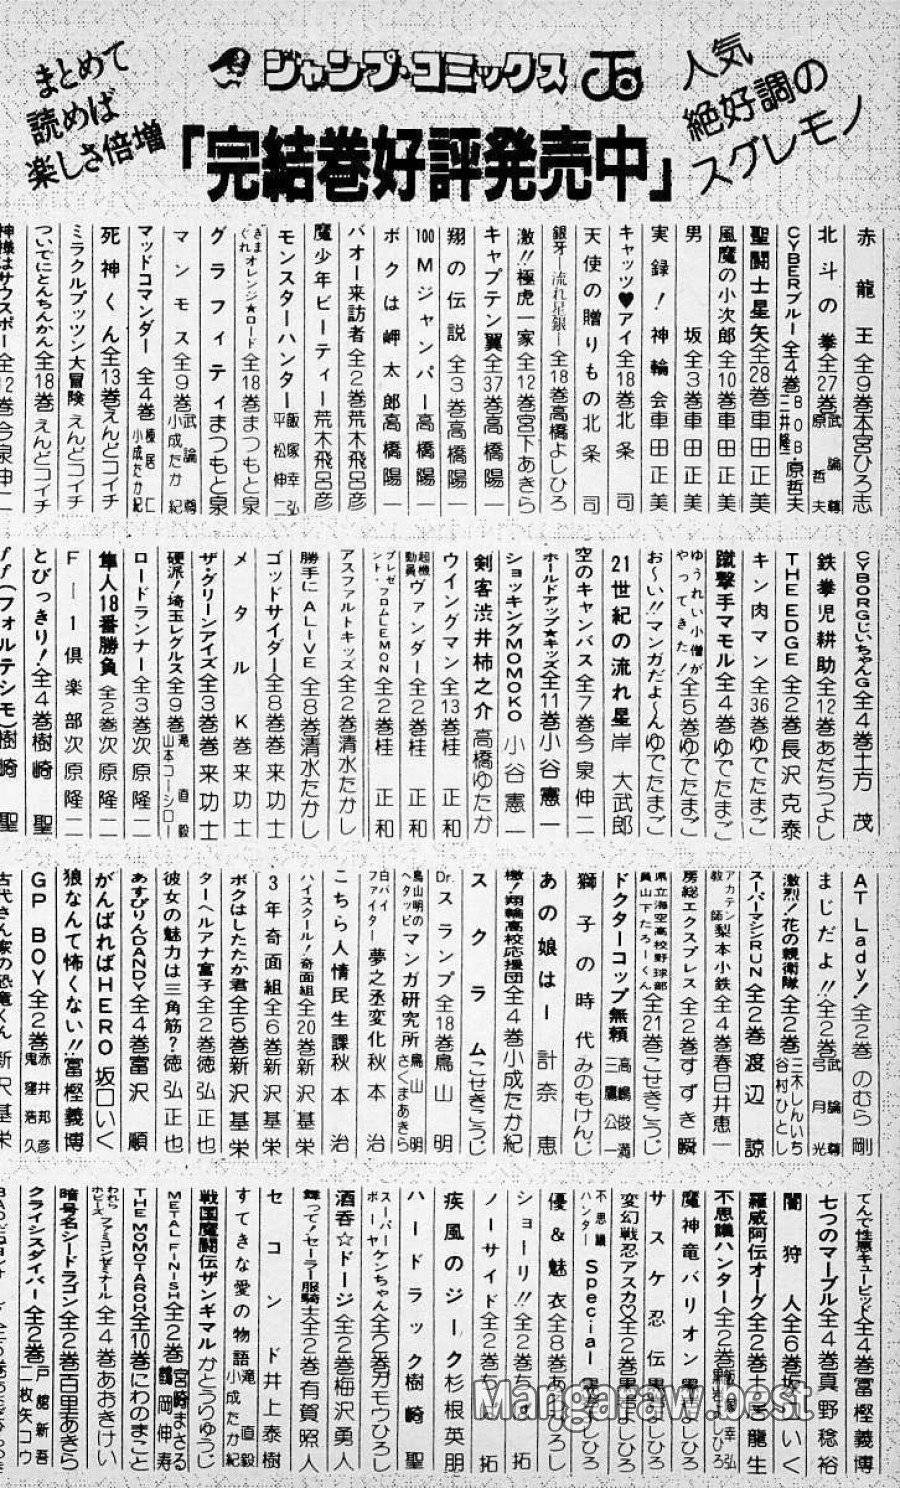 まとめて
読めば
楽しさ倍増
ジャンプ・コミックス
人気
絶好調の
スグレモノ
「完結巻好評発売中」
赤龍王 全9巻 本宮ひろ志
北斗の拳 全27巻 武論尊 原哲夫
CYBERブルー 全4巻 BOB・原哲夫 三井隆一
聖闘士星矢 全28巻 車田正美
風魔の小次郎 全10巻 車田正美
男坂 全3巻 車田正美
実録!神輪会 車田正美
キャッツ♥アイ 全18巻 北条司
天使の贈りもの 北条司
銀牙―流れ星銀― 全18巻 高橋よしひろ
激!!極虎一家 全12巻 宮下あきら
キャプテン翼 全37巻 高橋陽一
翔の伝説 全3巻 高橋陽一
100Mジャンパー 高橋陽一
ボクは岬太郎 高橋陽一
バオー来訪者 全2巻 荒木飛呂彦
魔少年ビーティー 荒木飛呂彦
モンスターハンター 飯塚幸弘 平松伸二
きまぐれオレンジ★ロード 全18巻 まつもと泉
グラフィティ まつもと泉
マンモス 全9巻 武論尊 小成たか紀
マッドコマンダー 全4巻 榎居仁 小成たか紀
死神くん 全13巻 えんどコイチ
ミラクルプッツン大冒険 えんどコイチ
ついでにとんちんかん 全18巻 えんどコイチ
神様はサウスポー 全12巻 今泉伸二
CYBORGじいちゃんG 全4巻 土方茂
鉄拳児耕助 全12巻 あだちつよし
THE EDGE 全2巻 長沢克泰
キン肉マン 全36巻 ゆでたまご
蹴撃手マモル 全4巻 ゆでたまご
ゆうれい小僧がやってきた! 全5巻 ゆでたまご
お〜い!!マンガだよ〜ん ゆでたまご
21世紀の流れ星 岸大武郎
空のキャンバス 全7巻 今泉伸二
ホールドアップ★キッズ 全11巻 小谷憲一
ショッキングMOMOKO 小谷憲一
剣客渋井柿之介 高橋ゆたか
ウイングマン 全13巻 桂正和
超機動員ヴァンダー 全2巻 桂正和
プレゼント・フロムLEMON 全2巻 桂正和
アスファルトキッズ 全2巻 清水たかし
勝手にALIVE 全8巻 清水たかし
ゴッドサイダー 全8巻 巻来功士
メタルK 巻来功士
ザ・グリーンアイズ 全3巻 巻来功士
硬派!埼玉レグルス 全9巻 滝直毅 山本コーシロー
ロードランナー 全3巻 次原隆二
隼人18番勝負 全2巻 次原隆二
F―1倶楽部 次原隆二
とびっきり! 全4巻 樹崎聖
ff(フォルテシモ) 樹崎聖
AT Lady! 全2巻 のむら剛
まじだよ!! 全2巻 武論尊 弓月光
激烈!花の親衛隊 全2巻 三木しんいち 谷村ひとし
スーパーマシンRUN 全2巻 渡辺諒
アカテン教師梨本小鉄 全4巻 春日井恵一
房総エクスプレス 全2巻 すずき瞬
県立海空高校野球部員山下たろーくん 全21巻 こせきこうじ
ドクターコップ無頼 高嶋俊満 三鷹公一
獅子の時代 みのもけんじ
あの娘はー 計奈恵
檄!翔輪高校応援団 全4巻 小成たか紀
スクラム こせきこうじ
Dr.スランプ 全18巻 鳥山明
鳥山明のヘタッピマンガ研究所 鳥山明 さくまあきら
白バイファイター 夢之丞変化 秋本治
こちら人情民生課 秋本治
ハイスクール!奇面組 全20巻 新沢基栄
3年奇面組 全6巻 新沢基栄
ボクはしたたか君 全5巻 新沢基栄
ターヘルアナ富子 全2巻 徳弘正也
彼女の魅力は三角筋? 徳弘正也
あすびりんDANDY 全4巻 富沢順
がんばればHERO 坂口いく
狼なんて怖くない!! 冨樫義博
GP BOY 全2巻 赤井邦彦 鬼窪浩久
古代さん家の恐竜くん 新沢基栄
てんで性悪キューピッド 全4巻 冨樫義博
七つのマーブル 全4巻 真野稔裕
闇狩人 全6巻 坂口いく
羅威阿伝オーグ 全2巻 土屋龍生
不思議ハンター 全2巻 飯塚幸弘 黒岩よしひろ
魔神竜バリオン 黒岩よしひろ
サスケ忍伝 黒岩よしひろ
変幻戦忍アスカ♡ 全2巻 黒岩よしひろ
不思議ハンター Special 黒岩よしひろ
優&魅衣 全8巻 あろひろし
ショーリ!! 全2巻 ちば拓
ノーサイド 全2巻 ちば拓
疾風のジーク 杉根英朋
ハードラック 樹崎聖
スーパーケンちゃんボーヤ 全2巻 ガモウひろし
酒呑☆ドージ 全2巻 梅沢勇人
舞って!セーラー服騎士 全2巻 有賀照人
セコンド 井上泰樹
すてきな愛の物語 滝直毅 小成たか紀
戦国魔闘伝ザンギマル かとうりゅうじ
METAL FINISH 全2巻 宮崎まさる 鶴岡伸寿
THE MOMOTAROH 全10巻 にわのまこと
われらホビーズ ファミコンゼミナール 全4巻 あおきけい
暗号名シードラゴン 全2巻 百里あきら
クライシスダイバー 全2巻 戸舘新吾 二枚矢コウ
Mangaraw.best